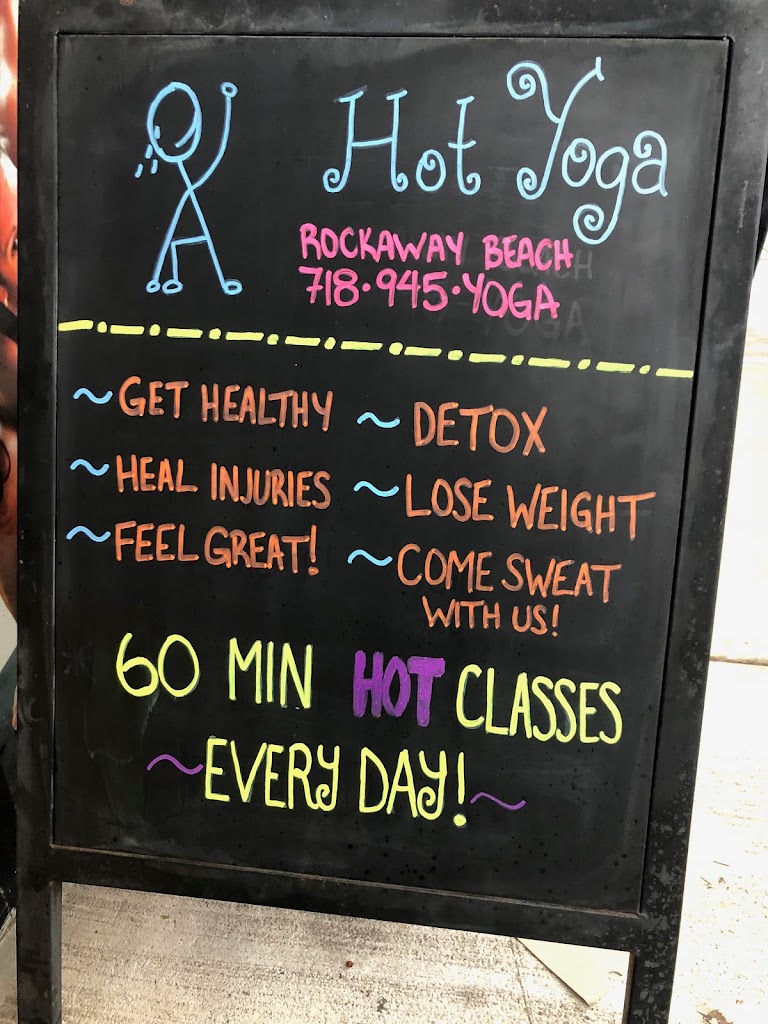 Hot Yoga
ROCKAWAY BEACH
718•945•YOGA
~GET HEALTHY
~HEAL INJURIES
~FEEL GREAT!
~DETOX
~LOSE WEIGHT
~COME SWEAT
WITH US!
60 MIN HOT CLASSES
~EVERY DAY!~